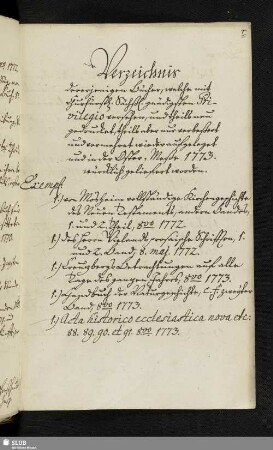 Verzeichnis
derer jenigen Bücher, welche mit
Churfürstl. Sächß. gnädigsten Pri-
vilegio versehen, und theils neu
gedrucket, theils aber nur verbeßert
und vermehrt wieder aufgeleget
und in der Oster-Meße 1773.
würcklich geliefert worden.
Exempl.
1.) von Mosheim vollständige Kirchengeschichte
des Neuen Testaments, andern Bandes,
1. und 2. Theil, 8vo 1772.
1.) des Herrn prosaische Schriften, 1.
und 2. Band, 8. maj. 1772.
1.) Betrachtungen auf alle
Tage des ganzen Jahres, 8vo 1773.
1. Handbuch der Naturgeschichte, zweyter
Band 8vo 1773.
1.) Acta historico ecclesiastica nova etc.
88. 89. 90. et 91. 8vo 1773.
SLUB